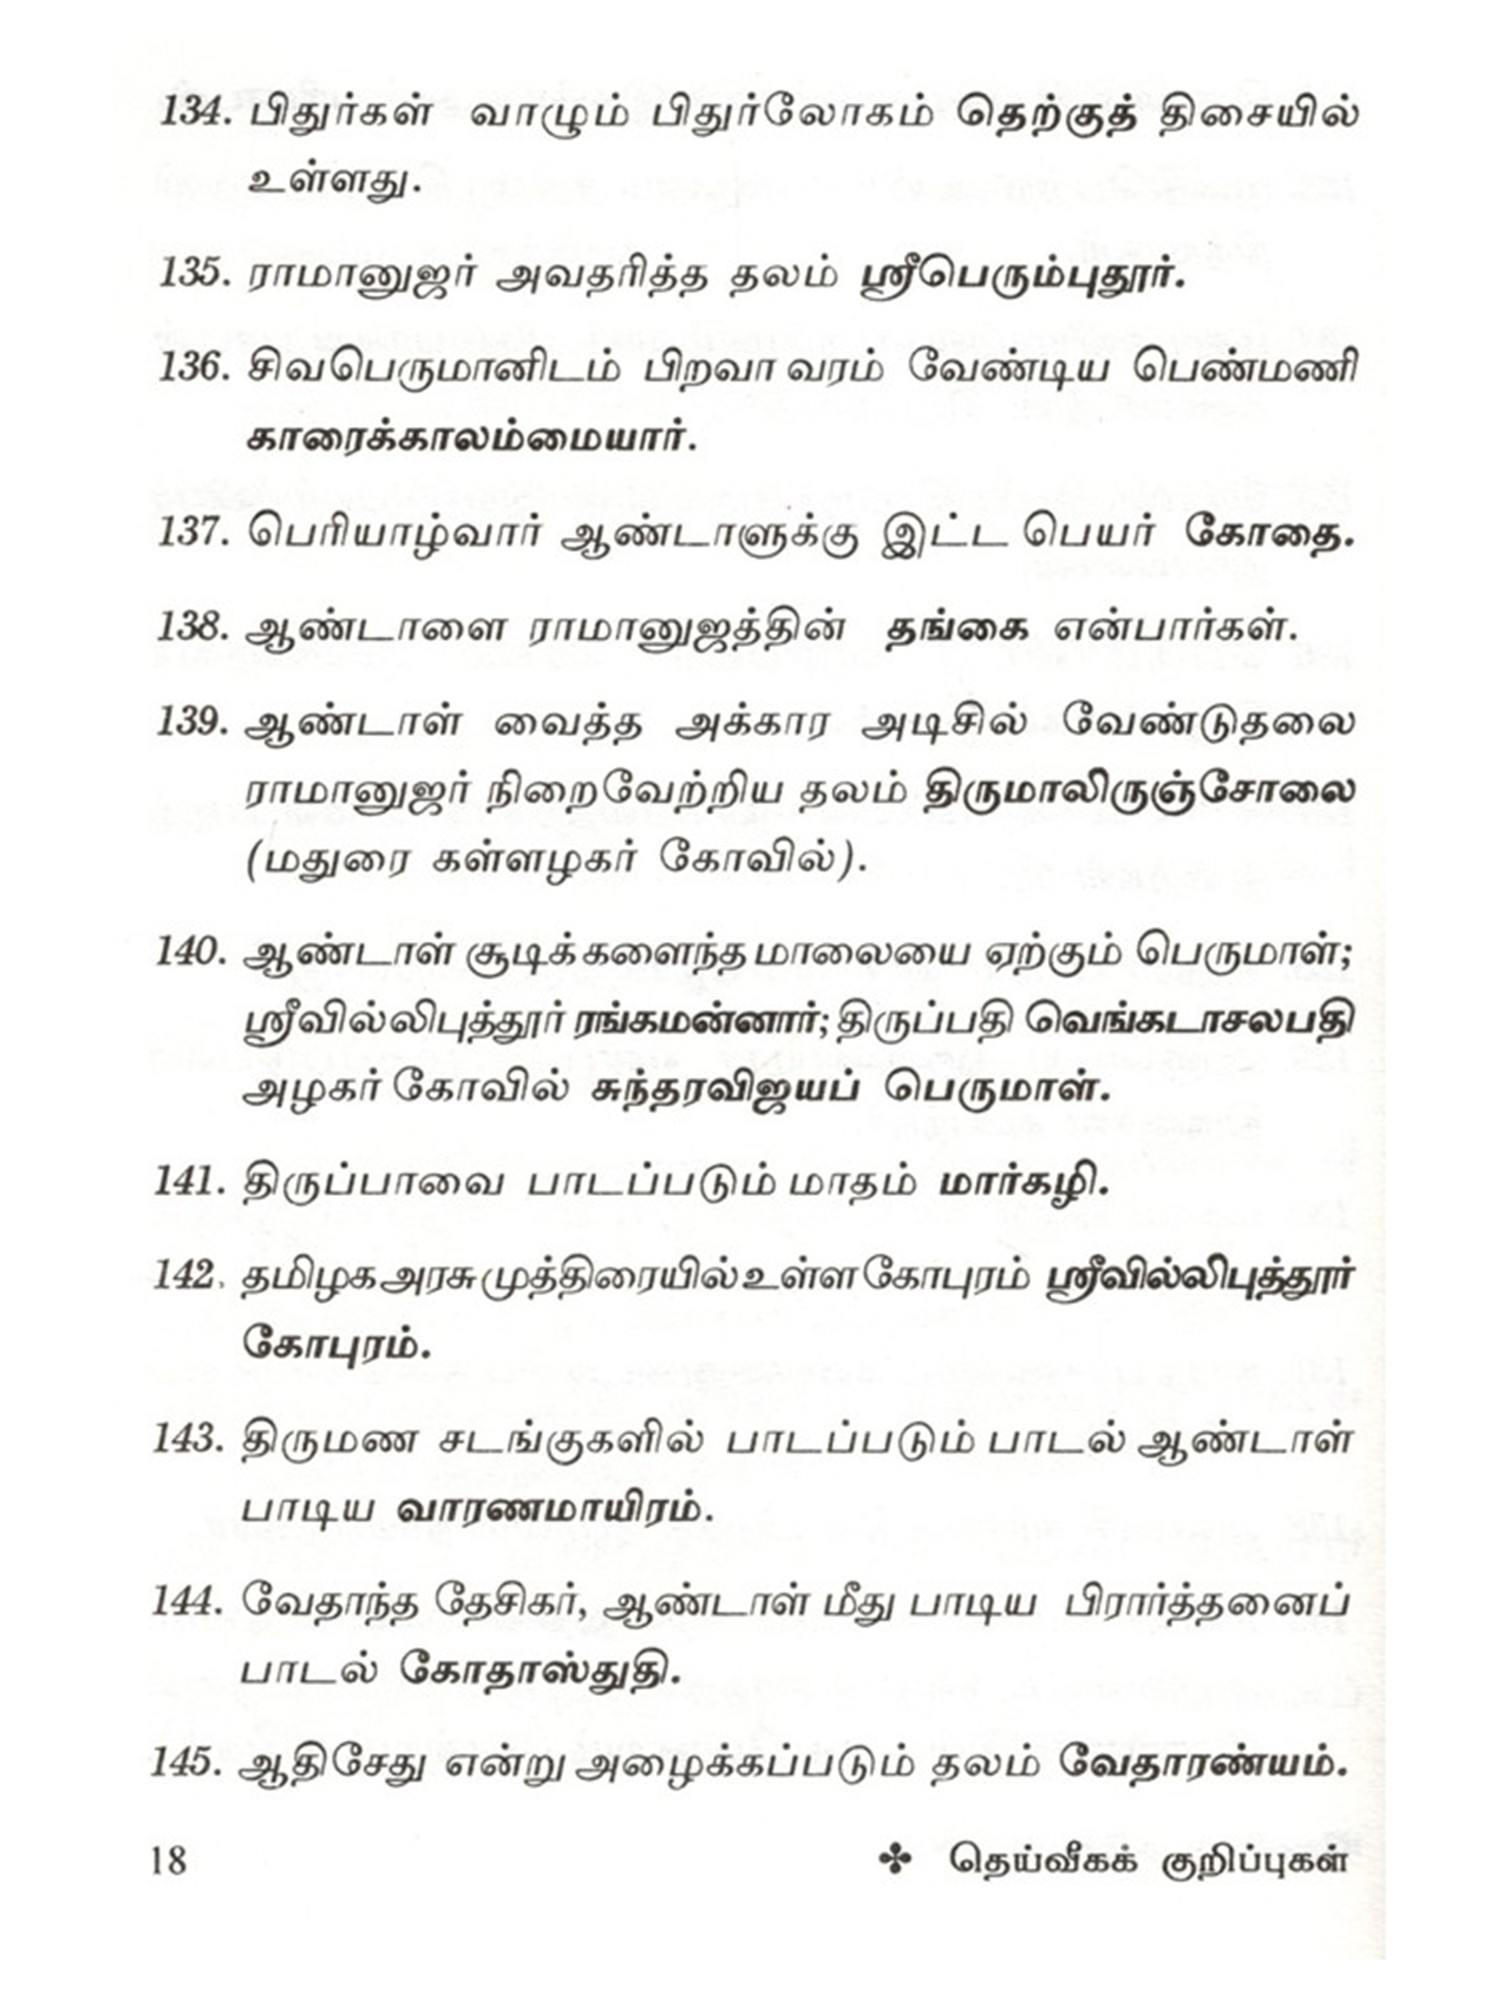 134. பிதுர்கள் வாழும் பிதுர்லோகம் தெற்குத் திசையில்
உள்ளது.
135. ராமானுஜர் அவதரித்த தலம் ஸ்ரீபெரும்புதூர்.
136. சிவபெருமானிடம் பிறவா வரம் வேண்டிய பெண்மணி
காரைக்காலம்மையார்.
137. பெரியாழ்வார் ஆண்டாளுக்கு இட்ட பெயர் கோதை.
138. ஆண்டாளை ராமானுஜத்தின் தங்கை என்பார்கள்.
139. ஆண்டாள் வைத்த அக்கார அடிசில் வேண்டுதலை
ராமானுஜர் நிறைவேற்றிய தலம் திருமாலிருஞ்சோலை
(மதுரை கள்ளழகர் கோவில்).
140. ஆண்டாள் சூடிக்களைந்த மாலையை ஏற்கும் பெருமாள்;
ஸ்ரீவில்லிபுத்தூர் ரங்கமன்னார்; திருப்பதி வெங்கடாசலபதி
அழகர் கோவில் சுந்தரவிஜயப் பெருமாள்.
141. திருப்பாவை பாடப்படும் மாதம் மார்கழி.
142. தமிழக அரசு முத்திரையில் உள்ள கோபுரம் ஸ்ரீவில்லிபுத்தூர்
கோபுரம்.
143. திருமண சடங்குகளில் பாடப்படும் பாடல் ஆண்டாள்
பாடிய வாரணமாயிரம்.
144. வேதாந்த தேசிகர், ஆண்டாள் மீது பாடிய பிரார்த்தனைப்
பாடல் கோதாஸ்துதி.
145. ஆதிசேது என்று அழைக்கப்படும் தலம் வேதாரண்யம்.
18 ✤ தெய்வீகக் குறிப்புகள்